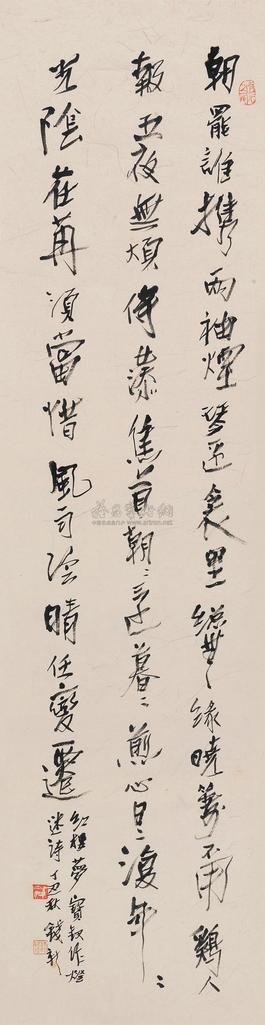 朝罷誰携兩袖煙琴邊衾里總無緣曉籌不用鷄人
報五夜無煩侍
焦首朝〻還暮〻煎心日〻復年〻
光陰荏苒須當惜風雨陰晴任變遷
紅樓夢寶釵作燈
迷詩丁丑秋錢